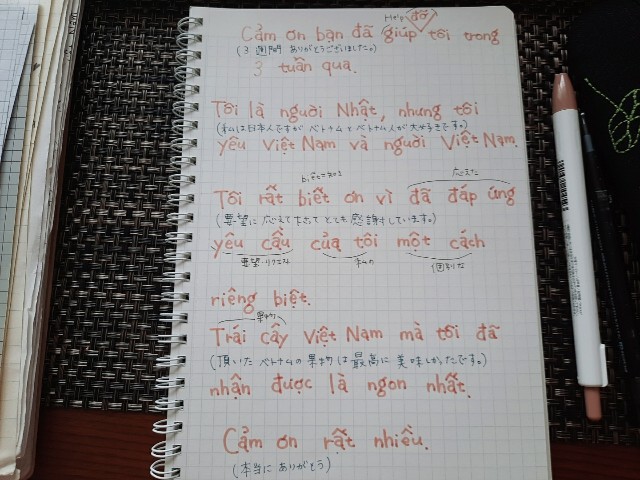 Help đỡ
Cảm ơn bạn đã giúp tôi trong
(3週間ありがとうございました。)
3 tuần qua.
Tôi là người Nhật, nhưng tôi
(私は日本人ですが ベトナムとベトナム人が大好きです。)
yêu Việt Nam và người Việt Nam.
biết=知る 応えた
Tôi rất biết ơn vì đã đáp ứng
(要望に応えて下さってとても感謝しています。)
yêu cầu của tôi một cách
要望・リクエスト 私の 個別な
riêng biệt.
果物
Trái cây Việt Nam mà tôi đã
(頂いたベトナムの果物は最高に美味しかったです。)
nhận được là ngon nhất.
Cảm ơn rất nhiều.
(本当にありがとう)